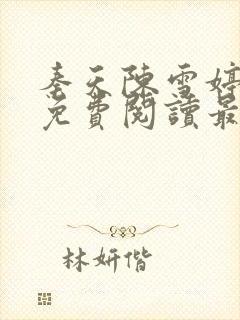 奏天陳雪婷
免費閱讀最
林妍偕